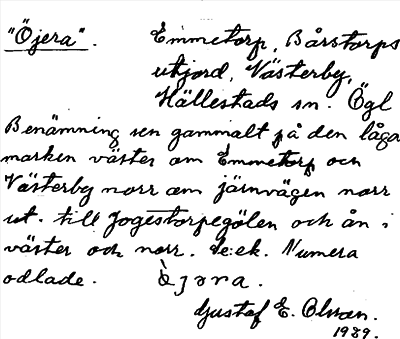 "Öjera". Emmetorp, Bårstorps
utjord, Västerby,
Hällestads sn. Ögl
Benämning sen gammalt på den låga
marken väster om Emmetorp och
Västerby norr om järnvägen norr
ut. till Jogestorpegölen och ån i
väster och norr. Numera
odlade. Öjora.
Gustaf E. Olsson.
1939.